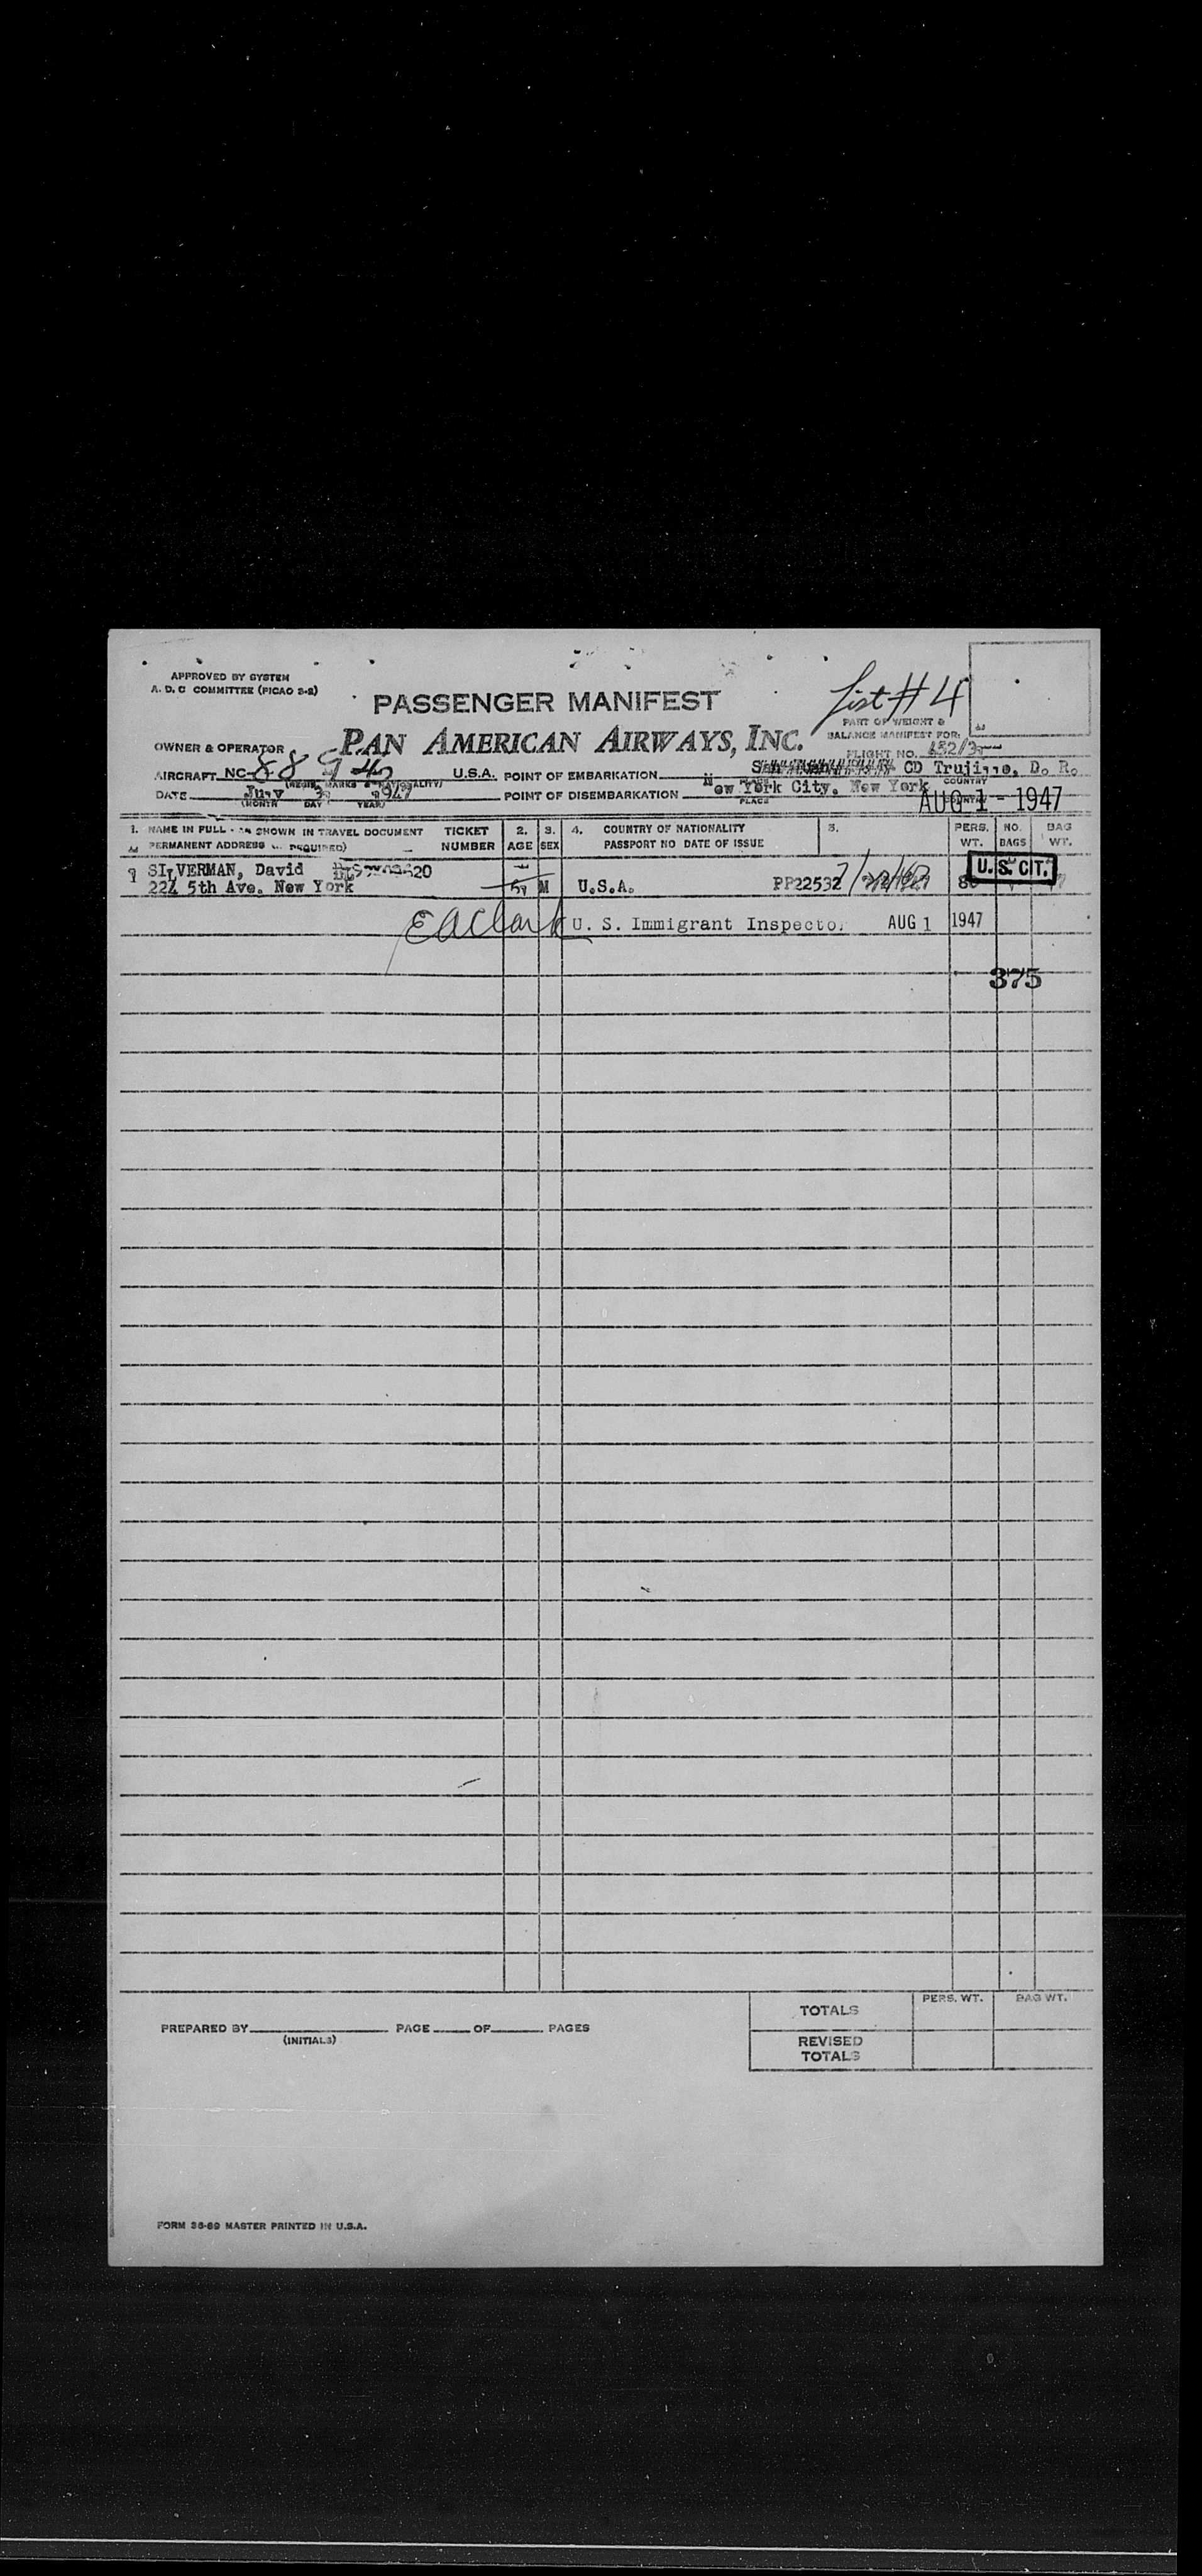 APPROVED BY SYSTEM
A. D. C COMMITTEE (PICAO
PASSENGER MANIFEST
List # 4
PART OF WEIGHT &
BALANCE MANIFEST FOR:
OWNER & OPERATOR
PAN AMERICAN AIRWAYS, INC.
FLIGHT NO.
AIRCRAFT NC-
U.S.A. POINT OF EMBARKATION
CD Trujillo, D. R.
DATE
(MONTH DAY YEAR)
POINT OF DISEMBARKATION
New York City, New York
PLACE
COUNTRY
AUG 1 - 1947
1. NAME IN FULL - AS SHOWN IN TRAVEL DOCUMENT
PERMANENT ADDRESS REQUIRED)
TICKET NUMBER
2. AGE
3. SEX
4. COUNTRY OF NATIONALITY
PASSPORT NO DATE OF ISSUE
5.
PERS. WT.
NO. BAGS
BAG WT.
SILVERMAN, David
224 5th Ave. New York
M U.S.A.
U. S. CIT.
EAClark U. S. Immigrant Inspector AUG 1 1947
375
TOTALS
PERS. WT.
BAG WT.
PREPARED BY
(INITIALS)
PAGE OF PAGES
REVISED TOTALS
FORM 36-69 MASTER PRINTED IN U.S.A.